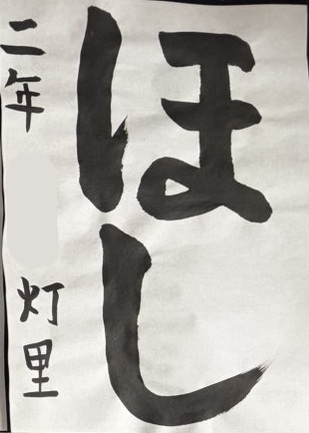 ほし
二年 灯里